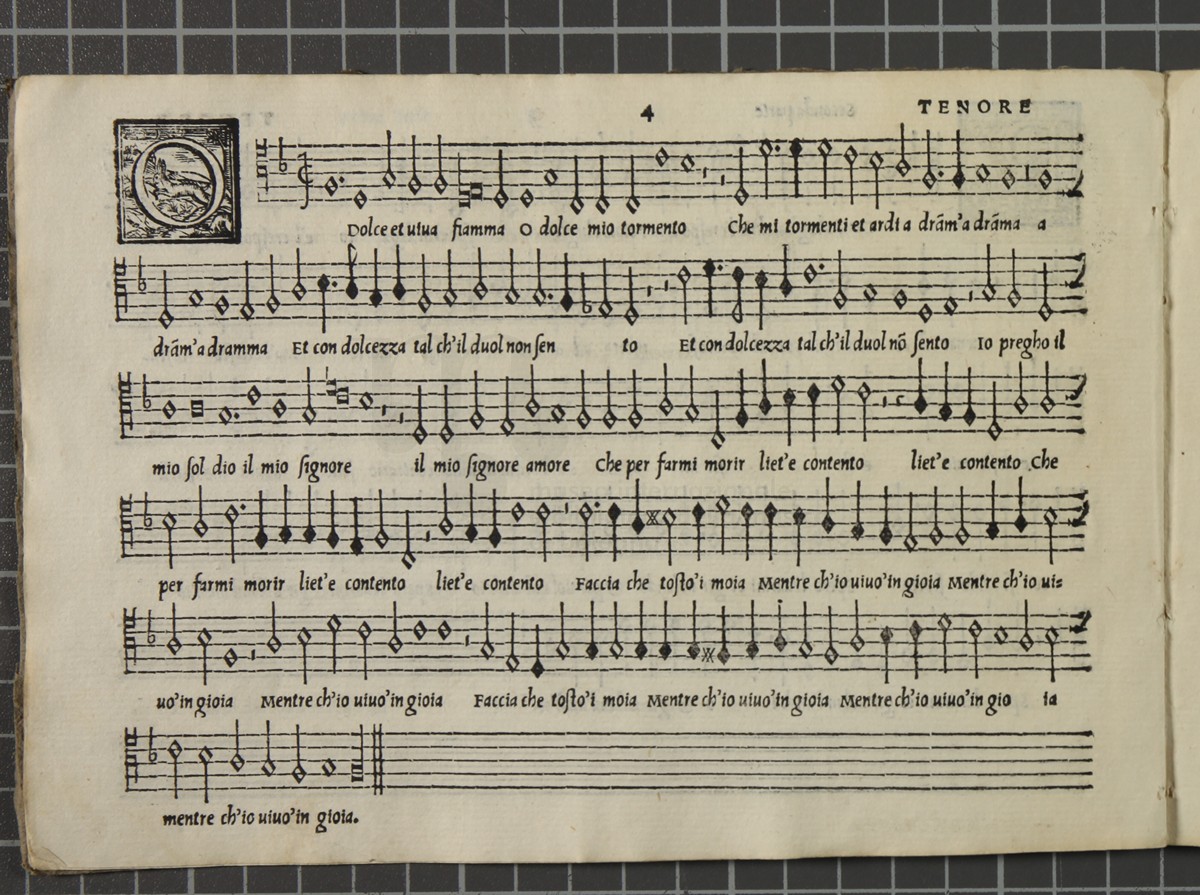 4 TENORE
O Dolce et uiua fiamma O dolce mio tormento Che mi tormenti et ardi a drãm'a drãma a
drãm'a dramma Et con dolcezza tal ch'il duol non sen to Et con dolcezza tal ch'il duol nõ sento Io pregho il
mio sol dio il mio signore il mio signore amore Che per farmi morir liet'e contento liet'e contento Che
per farmi morir liet'e contento liet'e contento Faccia che tosto'i moia Mentre ch'io uiuo'in gioia Mentre ch'io ui=
uo'in gioia Mentre ch'io uiuo'in gioia Faccia che tosto'i moia Mentre ch'io uiuo'in gioia Mentre ch'io uiuo'in gio ia
mentre ch'io uiuo'in gioia.